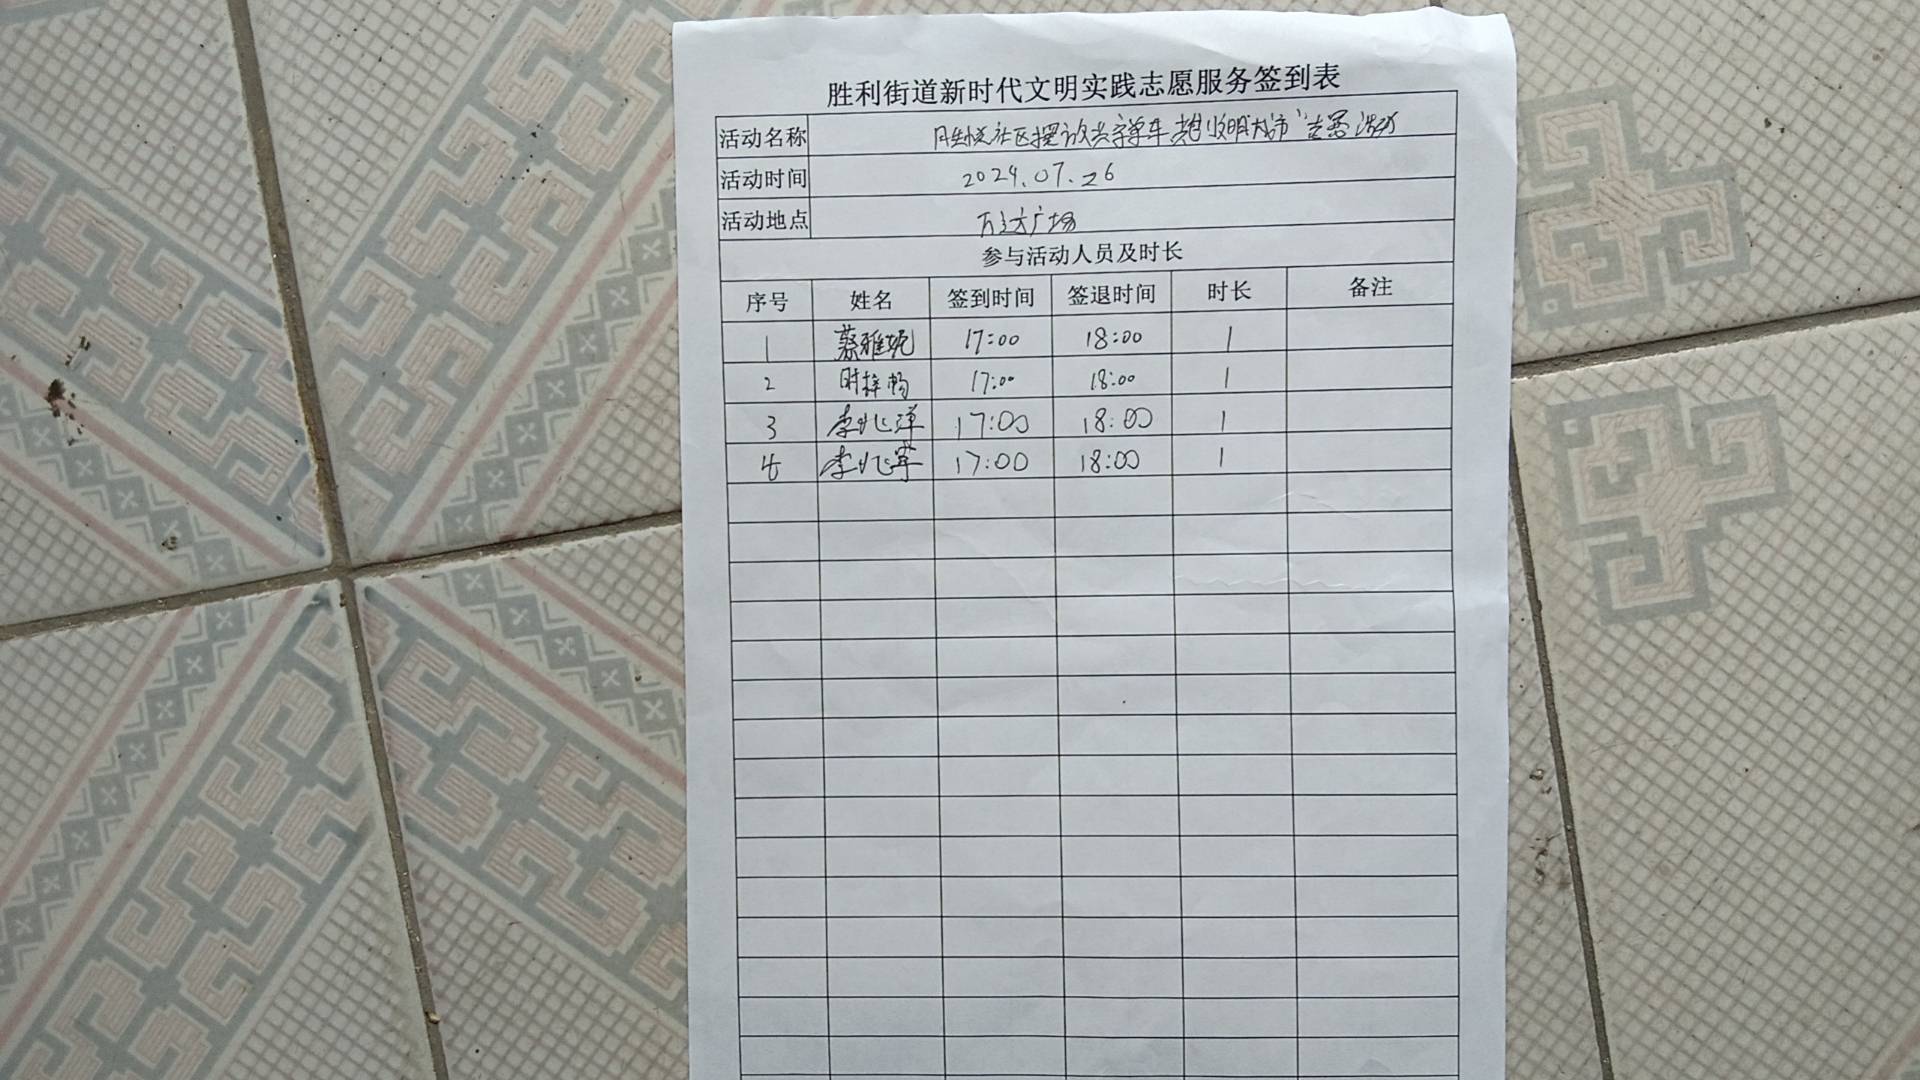 胜利街道新时代文明实践志愿服务签到表
活动名称 社区摆放共享单车 文明城市”志愿活动
活动时间 2024.07.26
活动地点 万达广场
参与活动人员及时长
序号 姓名 签到时间 签退时间 时长 备注
1 慕雅妮 17:00 18:00 1
2 时梓畅 17:00 18:00 1
3 李兆洋 17:00 18:00 1
4 李兆 17:00 18:00 1